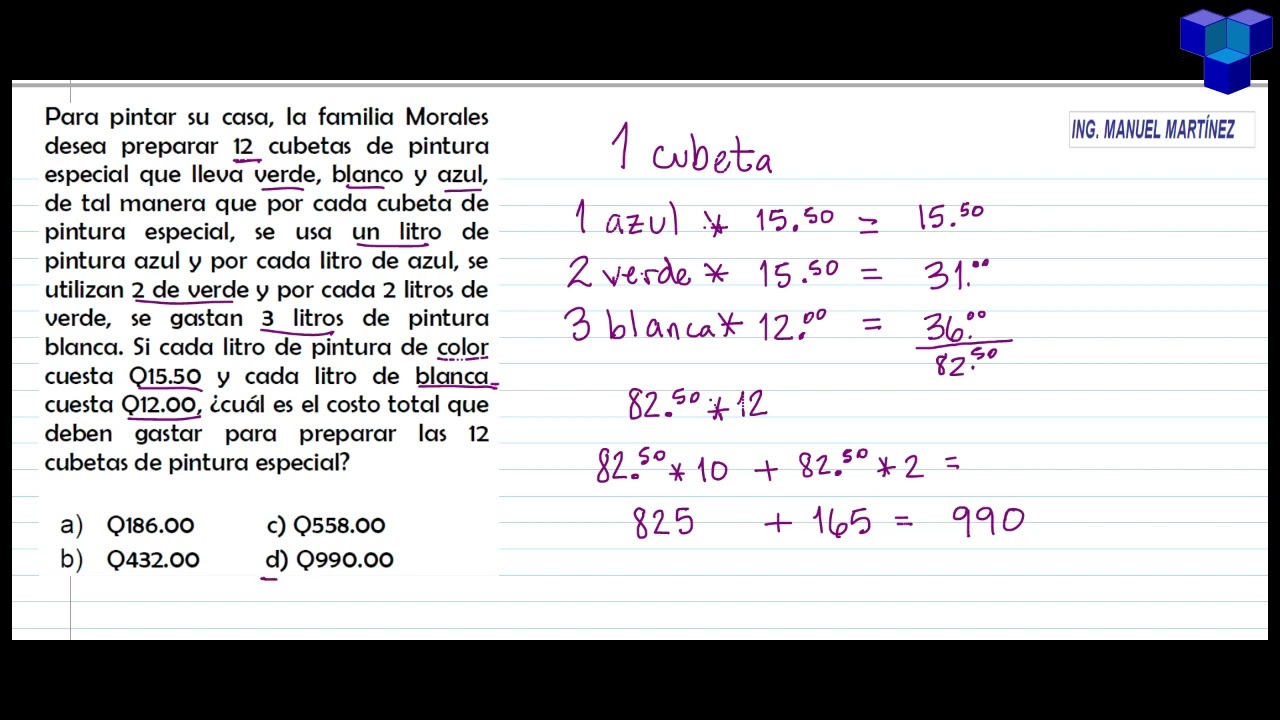 Para pintar su casa, la familia Morales
desea preparar 12 cubetas de pintura
especial que lleva verde, blanco y azul,
de tal manera que por cada cubeta de
pintura especial, se usa un litro de
pintura azul y por cada litro de azul, se
utilizan 2 de verde y por cada 2 litros de
verde, se gastan 3 litros de pintura
blanca. Si cada litro de pintura de color
cuesta Q15.50 y cada litro de blanca
cuesta Q12.00, ¿cuál es el costo total que
deben gastar para preparar las 12
cubetas de pintura especial?
a) Q186.00 c) Q558.00
b) Q432.00 d) Q990.00
ING. MANUEL MARTÍNEZ
1 cubeta
1 azul * 15.50 = 15.50
2 verde * 15.50 = 31.00
3 blanca * 12.00 = 36.00
82.50
82.50 * 12
82.50 * 10 + 82.50 * 2 =
825 + 165 = 990